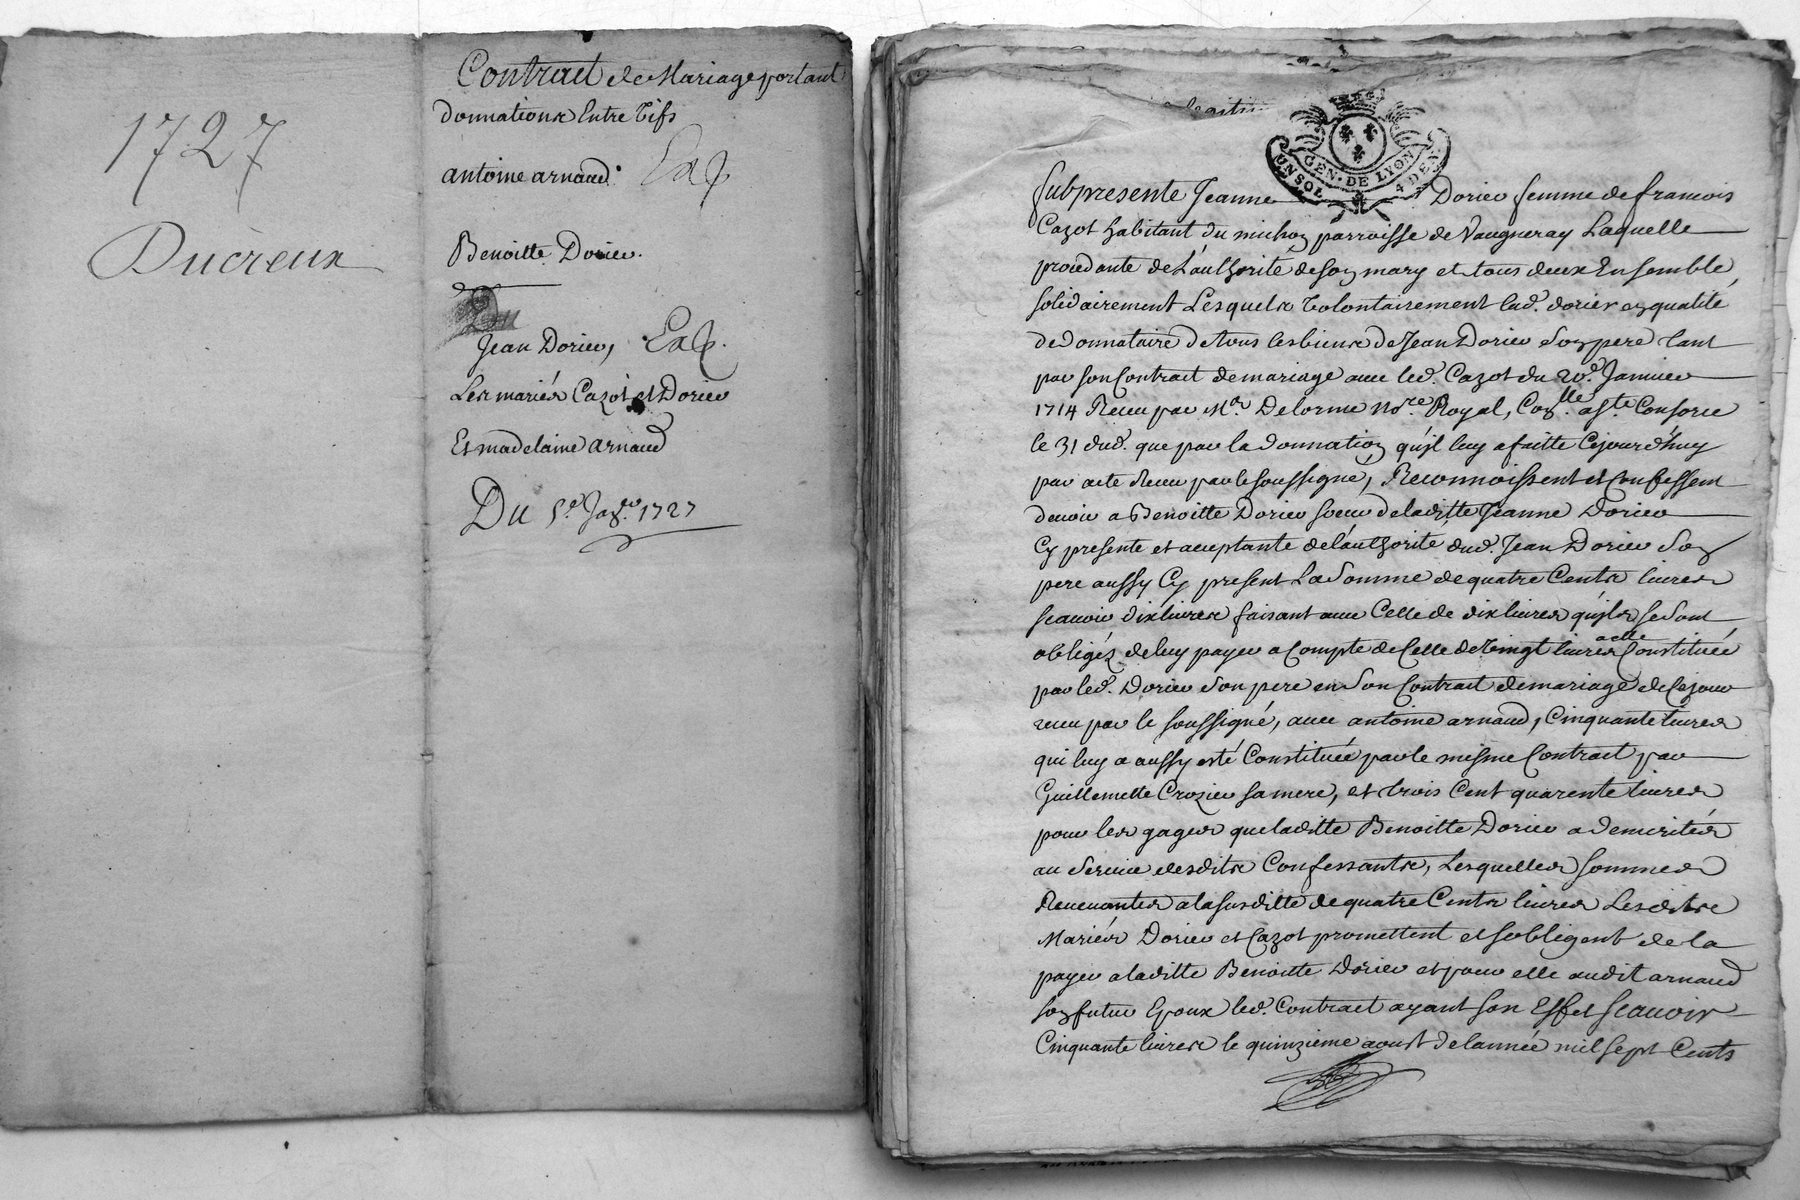 1727
Ducreux
Contract de Mariage portant
donnations Entre vifs
antoine arnaud. Exp
Benoitte Dorier.
Du
Jean Dorier, Exp.
Les mariés Cazot et Dorier
Et madelaine arnaud
Du 5e. Janr. 1727
GEN. DE LYON
UN SOL 4 DE.
fut presente Jeanne Dorier femme de francois
Cazot habitant du michon parroisse de Vaugneray Laquelle
procedante de L'authorité de son mary et tous deux Ensemble
solidairement Lesquels volontairement lad. dorier en qualité
de donnataire de tous les biens de Jean Dorier son pere tant
par son Contract de mariage avec led. Cazot du 20e. Janvier
1714 Receu par Me. Delorme nore. Royal, Conlle. aste. Consorce
le 31 dud. que par la donnation qu'jl luy a faitte Cejourd'huy
par acte Receu par le soussigné, Reconnoissent et Confessent
devoir a Benoitte Dorier soeur de laditte Jeanne Dorier
Cy presente et acceptante de l'authorité dud. Jean Dorier son
pere aussy Cy present La Somme de quatre Cents livres
scavoir dix livres faisant avec Celle de dix livres qu'jls se sont
obligés de luy payer a Compte de Celle de vingt livres a elle Constituée
par led. Dorier son pere en son Contract de mariage de Cejour
receu par le soussigné, avec antoine arnaud, Cinquante livres
qui luy a aussy esté Constituée par le mesme Contract par
Guillemette Crozier sa mere, et trois Cent quarente livres
pour les gages que laditte Benoitte Dorier a demerités
au Service desdits Confessants, Lesquelles sommes
Revenantes a la susditte de quatre Cents livres Lesdits
Mariés Dorier et Cazot promettent et s'obligent de la
payer a laditte Benoitte Dorier et pour elle audit arnaud
son futur Epoux led. Contract ayant son Effet Scavoir
Cinquante livres le quinzieme aoust de lannée mil sept Cents